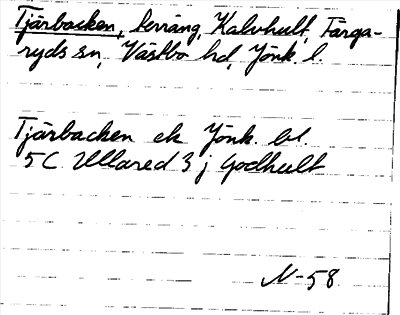 Tjärbacken, terräng, Kalvhult, Färga-
ryds sn, Västbo hd, Jönk. l.
Tjärbacken ek Jönk. bl.
5C Ullared 3 j Godhult
N-58